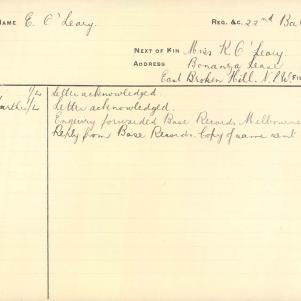 NAME E. O'Leary. REG. &C. 22nd Bat
NEXT OF KIN Miss K O'Leary.
ADDRESS Bonanza Lease
East Broken Hill. N.S.W.
Letter acknowledged
Letter acknowledged.
Enquiry forwarded Base Records Melbourne
Reply from Base Records. Copy of same sent